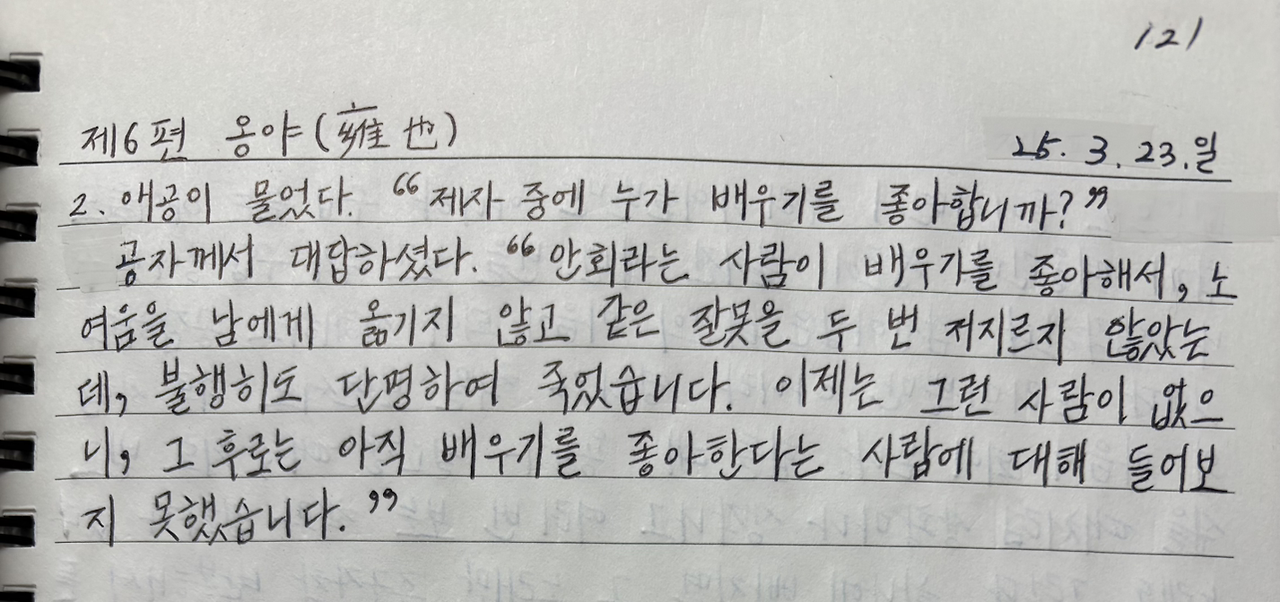 121
제6편 옹야(雍也)
25. 3. 23. 일
2. 애공이 물었다. “제자 중에 누가 배우기를 좋아합니까?”
공자께서 대답하셨다. “안회라는 사람이 배우기를 좋아해서, 노
여움을 남에게 옮기지 않고 같은 잘못을 두 번 저지르지 않았는
데, 불행히도 단명하여 죽었습니다. 이제는 그런 사람이 없으
니, 그 후로는 아직 배우기를 좋아한다는 사람에 대해 들어보
지 못했습니다.”